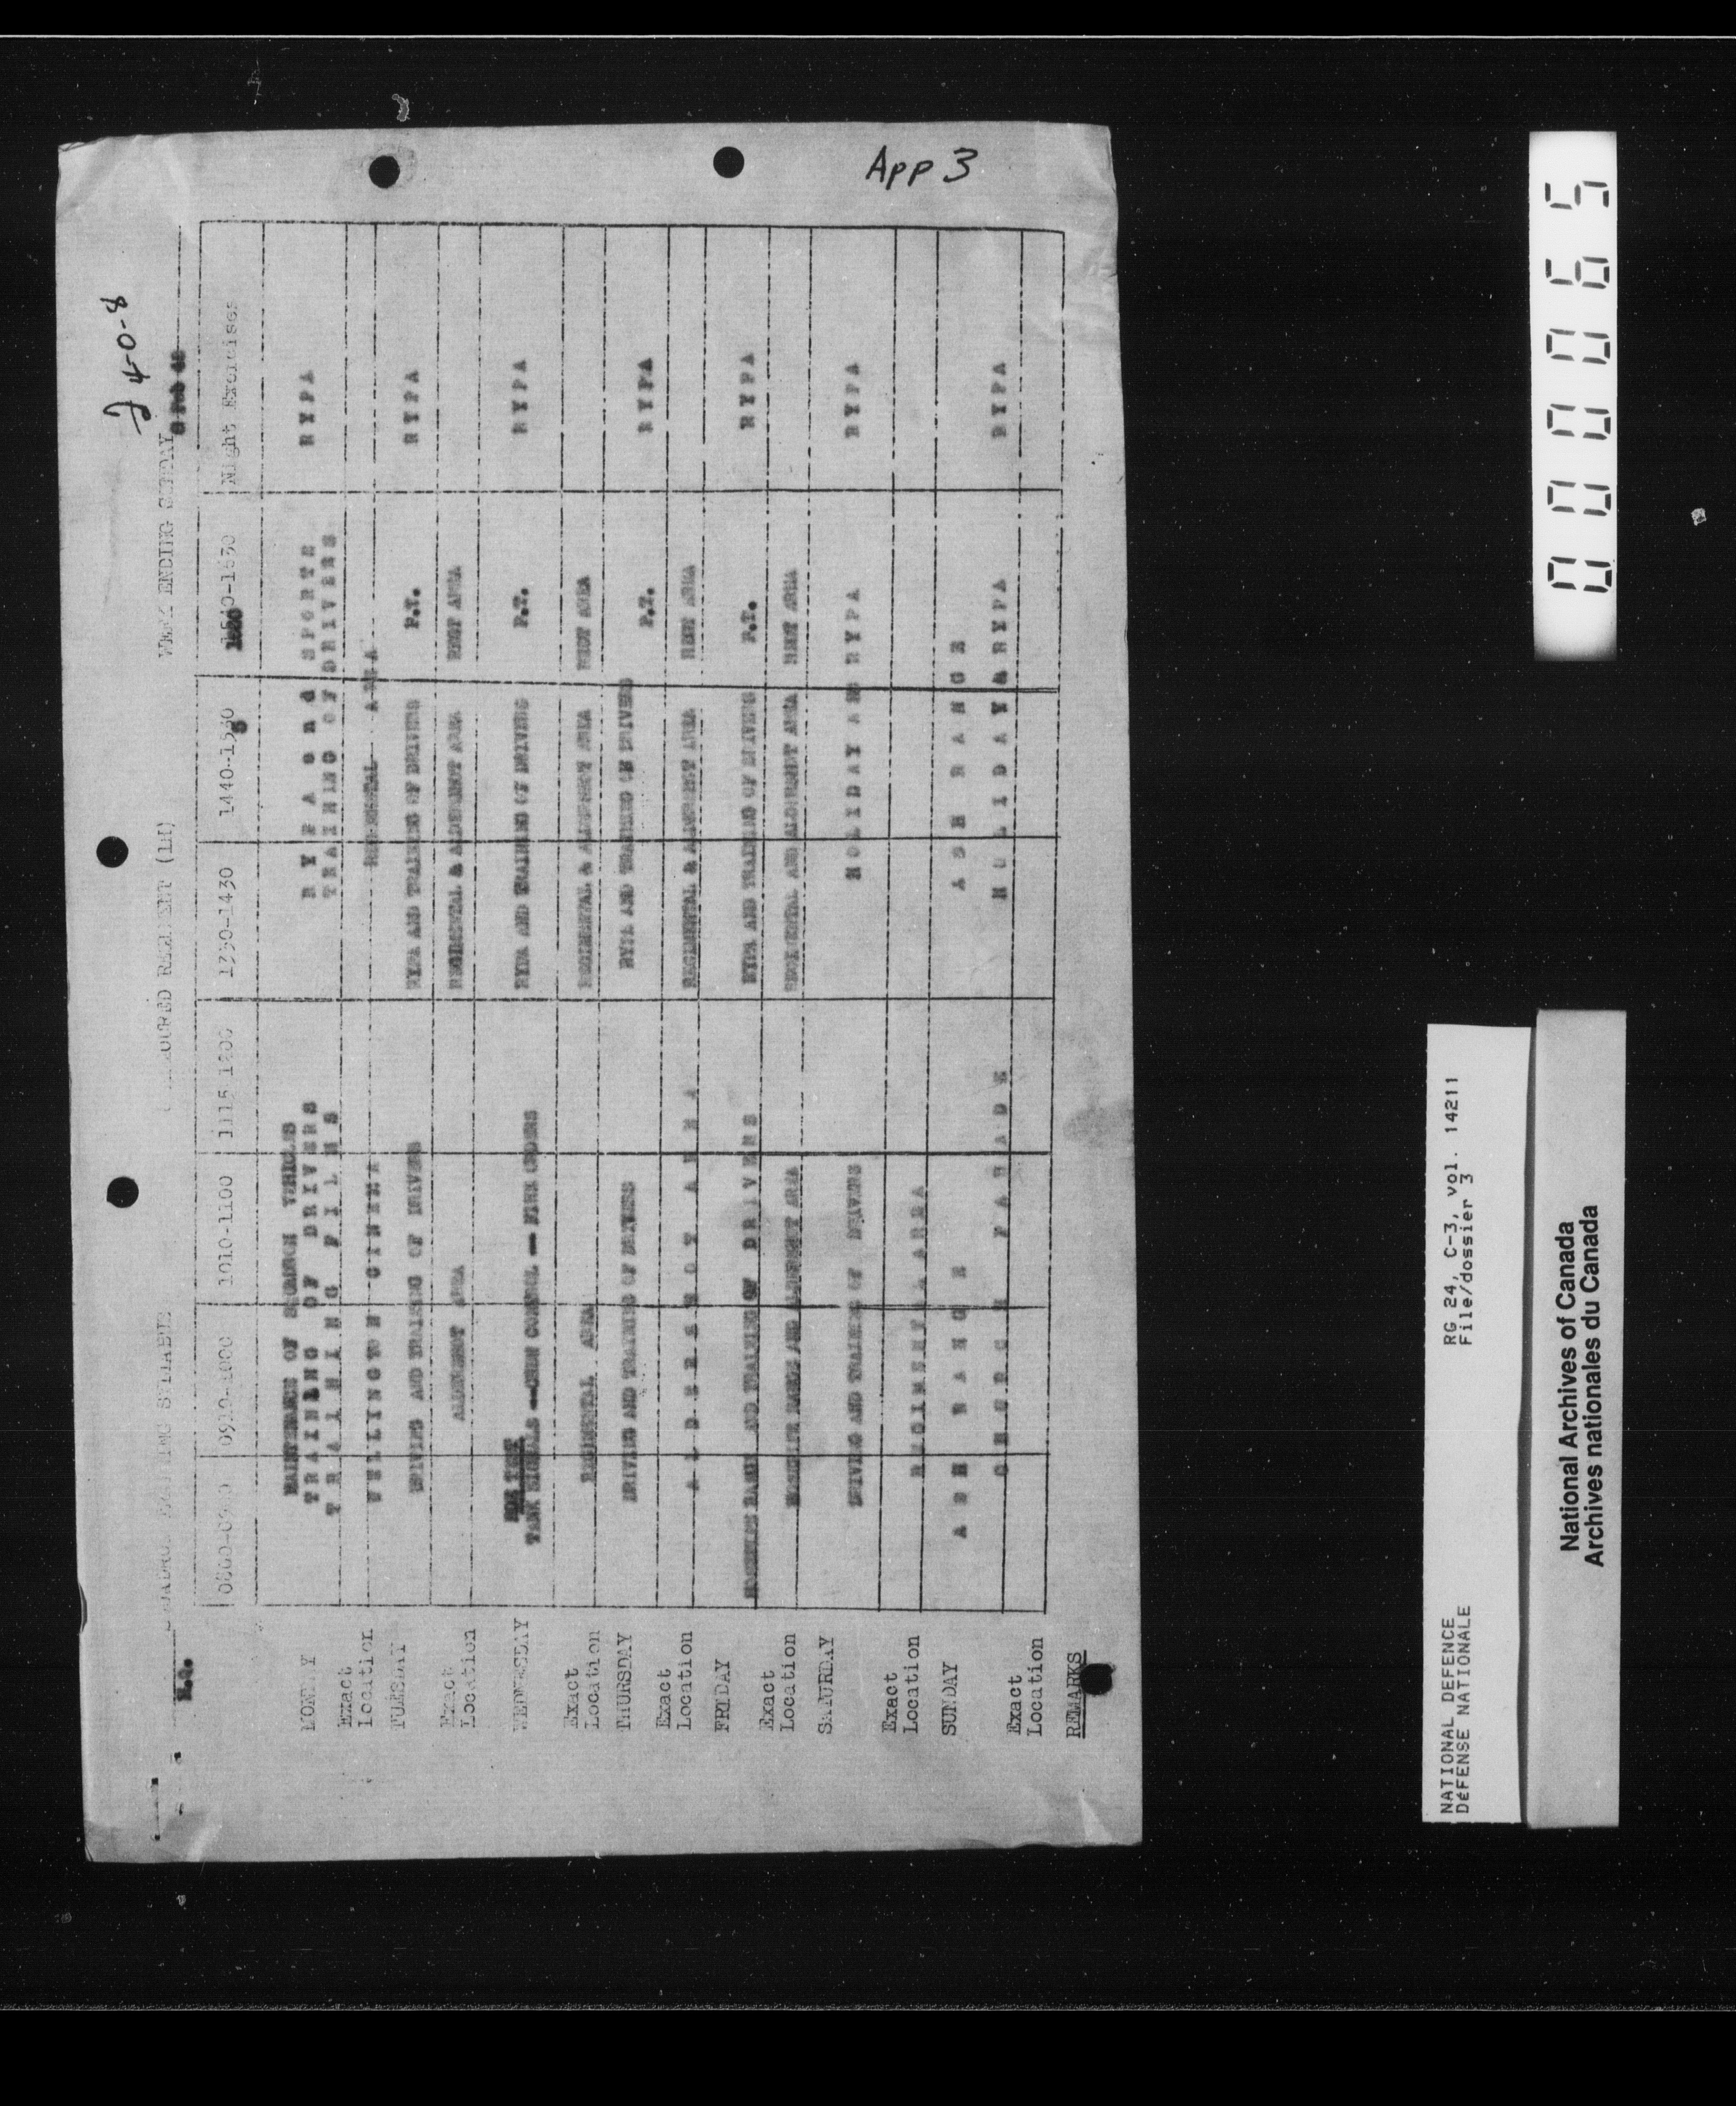 App 3
2-4-0-8
WEEK ENDING SUNDAY
REGIMENT
0910-1000 1010-1100 1115 1200 1330-1430 1440-1530 Night Exercises
MONDAY
MAINTENANCE OF SQUADRON VEHICLES
TRAINING OF DRIVERS
TRAINING FILMS
RYPA and SPORTS
TRAINING OF DRIVERS
RYPA
Exact
Location
WELLINGTON CINEMA
TUESDAY
DRIVING AND TRAINING OF DRIVERS
RYPA AND TRAINING OF DRIVERS
P.T.
RYPA
Exact
Location
ALDERSHOT AREA
REGIMENTAL & ALDERSHOT AREA
REGT AREA
WEDNESDAY
TANK SIGNALS — CREW CONTROL — FIRE ORDERS
RYPA AND TRAINING OF DRIVERS
P.T.
RYPA
Exact
Location
REGIMENTAL AREA
REGIMENTAL & ALDERSHOT AREA
REGT AREA
THURSDAY
DRIVING AND TRAINING OF DRIVERS
RYPA AND TRAINING OF DRIVERS
P.T.
RYPA
Exact
Location
ALDERSHOT AREA
REGIMENTAL & ALDERSHOT AREA
REGT AREA
FRIDAY
RANGE AND TRAINING OF DRIVERS
RYPA AND TRAINING OF DRIVERS
P.T.
RYPA
Exact
Location
RANGE AND ALDERSHOT AREA
REGIMENTAL AND ALDERSHOT AREA
REGT AREA
SATURDAY
DRIVING AND TRAINING OF DRIVERS
HOLIDAY AND RYPA
RYPA
Exact
Location
REGIMENTAL AREA
SUNDAY
ASH RANGE
ASH RANGE
CHURCH PARADE
HOLIDAY & RYPA
RYPA
Exact
Location
REMARKS
000065
NATIONAL DEFENCE
DÉFENSE NATIONALE
RG 24, C-3, vol. 14211
File/dossier 3
National Archives of Canada
Archives nationales du Canada